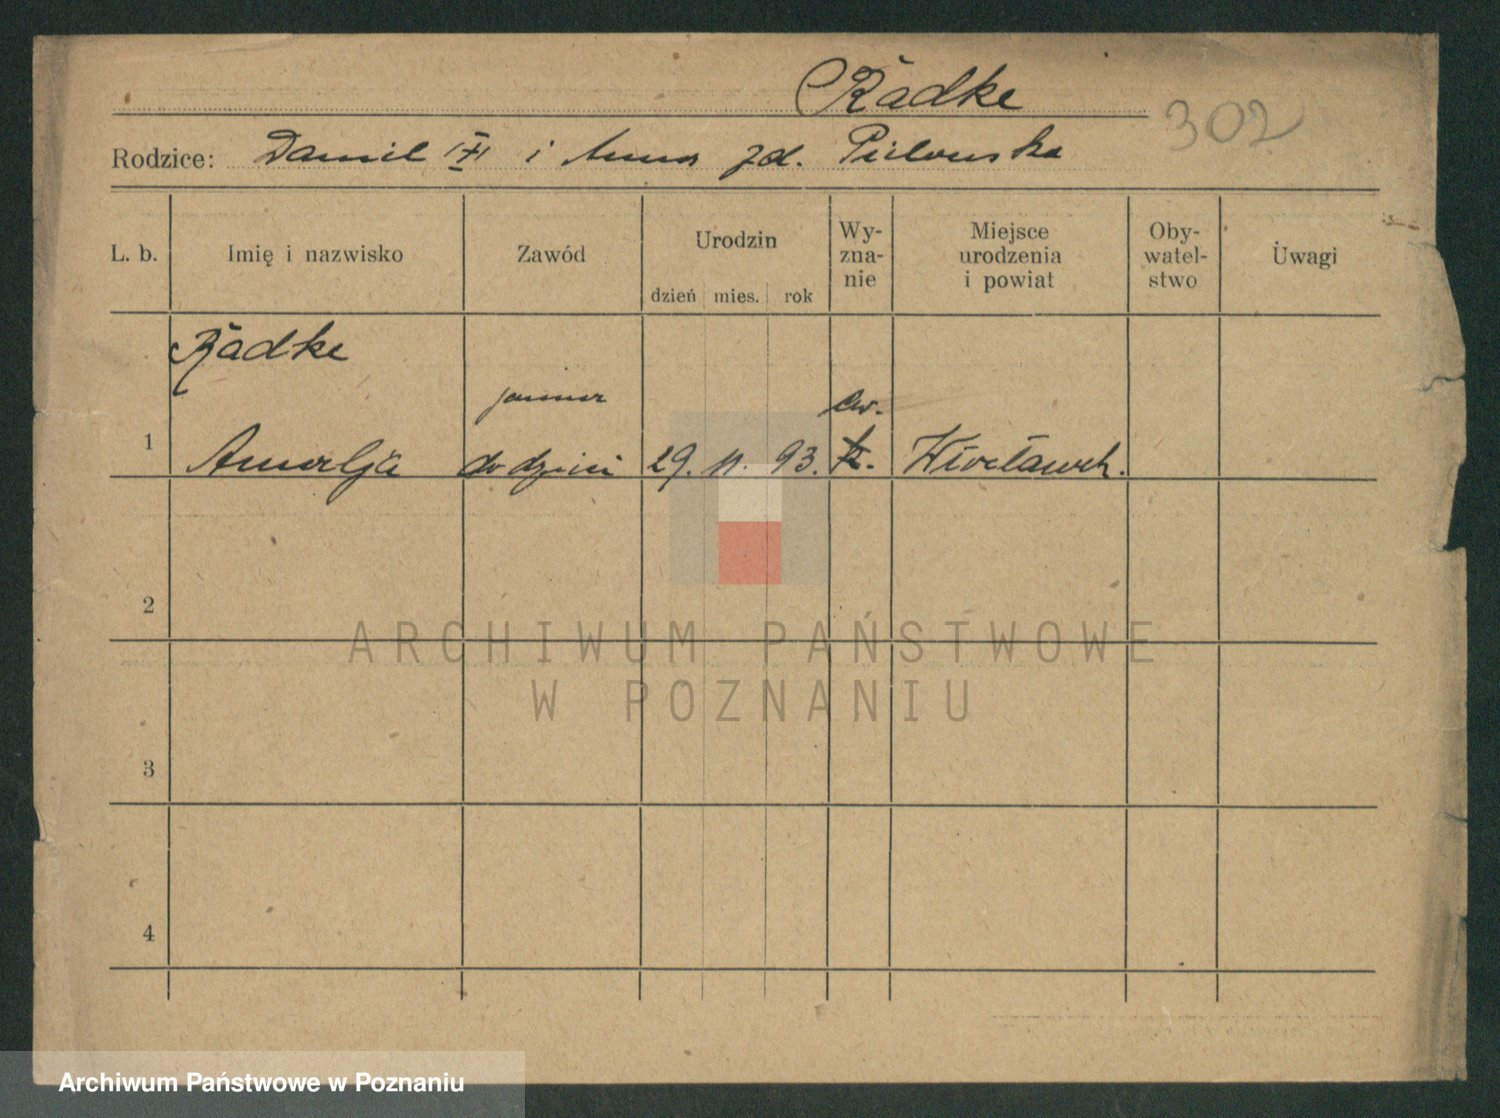 Radke
302
Rodzice: Daniel i Anna zd.
L. b. Imię i nazwisko Zawód Urodzin dzień mies. rok Wy-zna-nie Miejsce urodzenia i powiat Oby-watel-stwo Uwagi
Radke
panna ew.
1 Amalja do dzieci 29. 11. 93. Włocławek.
2
3
4
ARCHIWUM PAŃSTWOWE
W POZNANIU
Archiwum Państwowe w Poznaniu